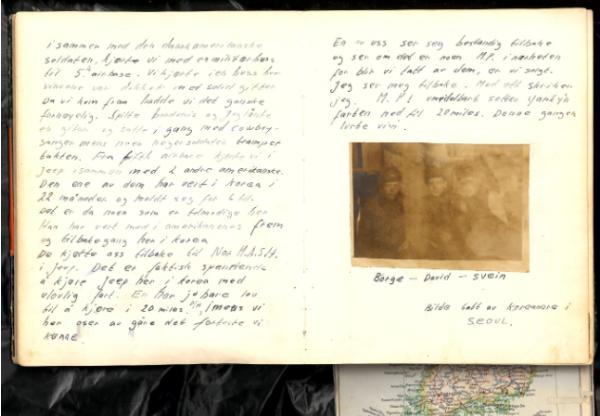 i sammen med den dansk amerikanske
soldaten, kjørte vi med en
til 5. airbase. Vi kjørte i en buss hvor
vinduene var dekket med solid gitter
Da vi kom fram hadde vi det ganske
fornøyelig. Spilte og jeg lånte
en gitar og satte i gang med cowboy-
sanger mens noen negersoldater trampet
takten. Fra fifth airbase kjørte vi i
jeep isammen med 2 andre amerikanske.
Den ene av dem har vert i Korea i
22 måneder og meldt seg for 6 til.
Det er da noen som er tålmodige her
Han har vert med i amerikanernes frem
og tilbakegang her i Korea
De kjørte oss tilbake til Nor M.A.S.H.
i jeep. Det er faktisk spennende
å kjøre jeep her i Korea med
ulovlig fart. En har jo bare lov
til å kjøre i 20 miles. mens vi
her oser av gåre det forteste vi
kunne.
En av oss ser seg bestandig tilbake
og ser om det er noen M.P. i nærheten
for blir vi tatt av dem, er vi solgt.
Jeg ser meg tilbake. Med ett skriker
jeg. M.P! umiddelbart setter
farten ned til 20 miles. Denne gangen
lurte vi'n.
Børge - David - Svein
Bilde tatt av Koreanere i
SEOUL.